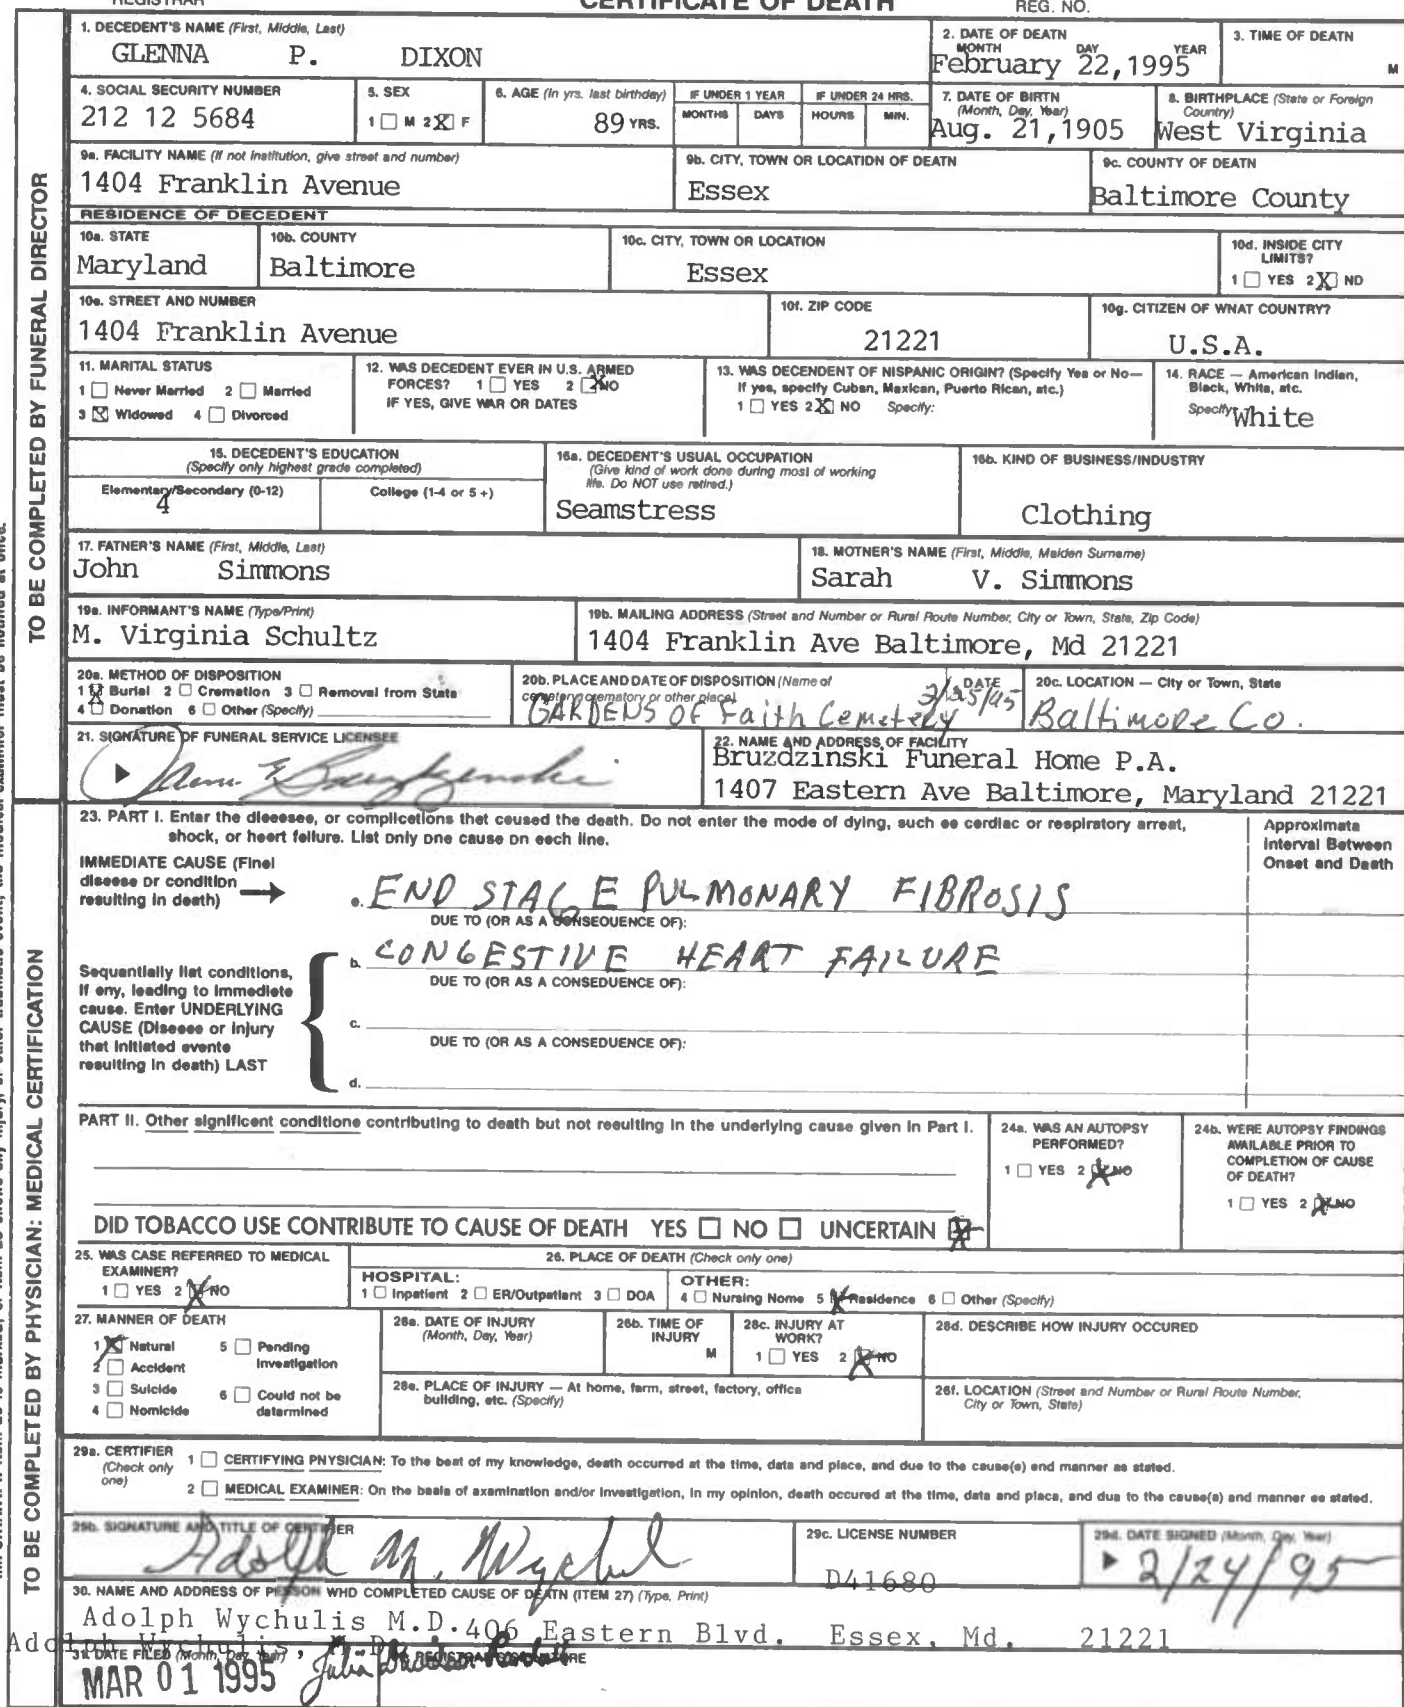 CERTIFICATE OF DEATH
REGISTRAR
REG. NO.
TO BE COMPLETED BY FUNERAL DIRECTOR
1. DECEDENT'S NAME (First, Middle, Last)
GLENNA P. DIXON
2. DATE OF DEATH
MONTH DAY YEAR
February 22,1995
3. TIME OF DEATH
M
4. SOCIAL SECURITY NUMBER
212 12 5684
5. SEX
1 M 2 X F
6. AGE (In yrs. last birthday)
89 YRS.
IF UNDER 1 YEAR
MONTHS DAYS
IF UNDER 24 HRS.
HOURS MIN.
7. DATE OF BIRTH
(Month, Day, Year)
Aug. 21,1905
8. BIRTHPLACE (State or Foreign
Country)
West Virginia
9a. FACILITY NAME (If not institution, give street and number)
1404 Franklin Avenue
9b. CITY, TOWN OR LOCATION OF DEATH
Essex
9c. COUNTY OF DEATH
Baltimore County
RESIDENCE OF DECEDENT
10a. STATE
Maryland
10b. COUNTY
Baltimore
10c. CITY, TOWN OR LOCATION
Essex
10d. INSIDE CITY
LIMITS?
1 YES 2 X NO
10e. STREET AND NUMBER
1404 Franklin Avenue
10f. ZIP CODE
21221
10g. CITIZEN OF WHAT COUNTRY?
U.S.A.
11. MARITAL STATUS
1 Never Married 2 Married
3 X Widowed 4 Divorced
12. WAS DECEDENT EVER IN U.S. ARMED
FORCES? 1 YES 2 X NO
IF YES, GIVE WAR OR DATES
13. WAS DECENDENT OF HISPANIC ORIGIN? (Specify Yes or No—
If yes, specify Cuban, Mexican, Puerto Rican, etc.)
1 YES 2 X NO Specify:
14. RACE — American Indian,
Black, White, etc.
Specify White
15. DECEDENT'S EDUCATION
(Specify only highest grade completed)
Elementary/Secondary (0-12) College (1-4 or 5+)
4
16a. DECEDENT'S USUAL OCCUPATION
(Give kind of work done during most of working
life. Do NOT use retired.)
Seamstress
16b. KIND OF BUSINESS/INDUSTRY
Clothing
17. FATHER'S NAME (First, Middle, Last)
John Simmons
18. MOTHER'S NAME (First, Middle, Maiden Surname)
Sarah V. Simmons
19a. INFORMANT'S NAME (Type/Print)
M. Virginia Schultz
19b. MAILING ADDRESS (Street and Number or Rural Route Number, City or Town, State, Zip Code)
1404 Franklin Ave Baltimore, Md 21221
20a. METHOD OF DISPOSITION
1 X Burial 2 Cremation 3 Removal from State
4 Donation 6 Other (Specify)
20b. PLACE AND DATE OF DISPOSITION (Name of
cemetery, crematory or other place)
DATE
GARDENS OF Faith Cemetery 2/25/95
20c. LOCATION — City or Town, State
Baltimore Co.
21. SIGNATURE OF FUNERAL SERVICE LICENSEE
22. NAME AND ADDRESS OF FACILITY
Bruzdzinski Funeral Home P.A.
1407 Eastern Ave Baltimore, Maryland 21221
TO BE COMPLETED BY PHYSICIAN: MEDICAL CERTIFICATION
23. PART I. Enter the diseases, or complications that caused the death. Do not enter the mode of dying, such as cardiac or respiratory arrest,
shock, or heart failure. List only one cause on each line.
Approximate
Interval Between
Onset and Death
IMMEDIATE CAUSE (Final
disease or condition
resulting in death)
a. END STAGE PULMONARY FIBROSIS
DUE TO (OR AS A CONSEQUENCE OF):
b. CONGESTIVE HEART FAILURE
DUE TO (OR AS A CONSEQUENCE OF):
Sequentially list conditions,
if any, leading to immediate
cause. Enter UNDERLYING
CAUSE (Disease or injury
that initiated events
resulting in death) LAST
c.
DUE TO (OR AS A CONSEQUENCE OF):
d.
PART II. Other significant conditions contributing to death but not resulting in the underlying cause given in Part I.
24a. WAS AN AUTOPSY
PERFORMED?
1 YES 2 X NO
24b. WERE AUTOPSY FINDINGS
AVAILABLE PRIOR TO
COMPLETION OF CAUSE
OF DEATH?
1 YES 2 X NO
DID TOBACCO USE CONTRIBUTE TO CAUSE OF DEATH YES NO UNCERTAIN X
25. WAS CASE REFERRED TO MEDICAL
EXAMINER?
1 YES 2 X NO
26. PLACE OF DEATH (Check only one)
HOSPITAL:
1 Inpatient 2 ER/Outpatient 3 DOA
OTHER:
4 Nursing Home 5 X Residence 6 Other (Specify)
27. MANNER OF DEATH
1 X Natural 5 Pending
2 Accident Investigation
3 Suicide 6 Could not be
4 Homicide determined
28a. DATE OF INJURY
(Month, Day, Year)
28b. TIME OF
INJURY
M
28c. INJURY AT
WORK?
1 YES 2 X NO
28d. DESCRIBE HOW INJURY OCCURED
28e. PLACE OF INJURY — At home, farm, street, factory, office
building, etc. (Specify)
28f. LOCATION (Street and Number or Rural Route Number,
City or Town, State)
29a. CERTIFIER
(Check only
one)
1 CERTIFYING PHYSICIAN: To the best of my knowledge, death occurred at the time, date and place, and due to the cause(s) and manner as stated.
2 MEDICAL EXAMINER: On the basis of examination and/or investigation, in my opinion, death occured at the time, date and place, and due to the cause(s) and manner as stated.
29b. SIGNATURE AND TITLE OF CERTIFIER
Adolph M. Wychul
29c. LICENSE NUMBER
D41680
29d. DATE SIGNED (Month, Day, Year)
2/24/95
30. NAME AND ADDRESS OF PERSON WHO COMPLETED CAUSE OF DEATH (ITEM 27) (Type, Print)
Adolph Wychulis M.D. 406 Eastern Blvd. Essex, Md. 21221
Adolph Wychulis, M.D.
31. DATE FILED (Month, Day, Year)
MAR 01 1995
REGISTRAR'S SIGNATURE